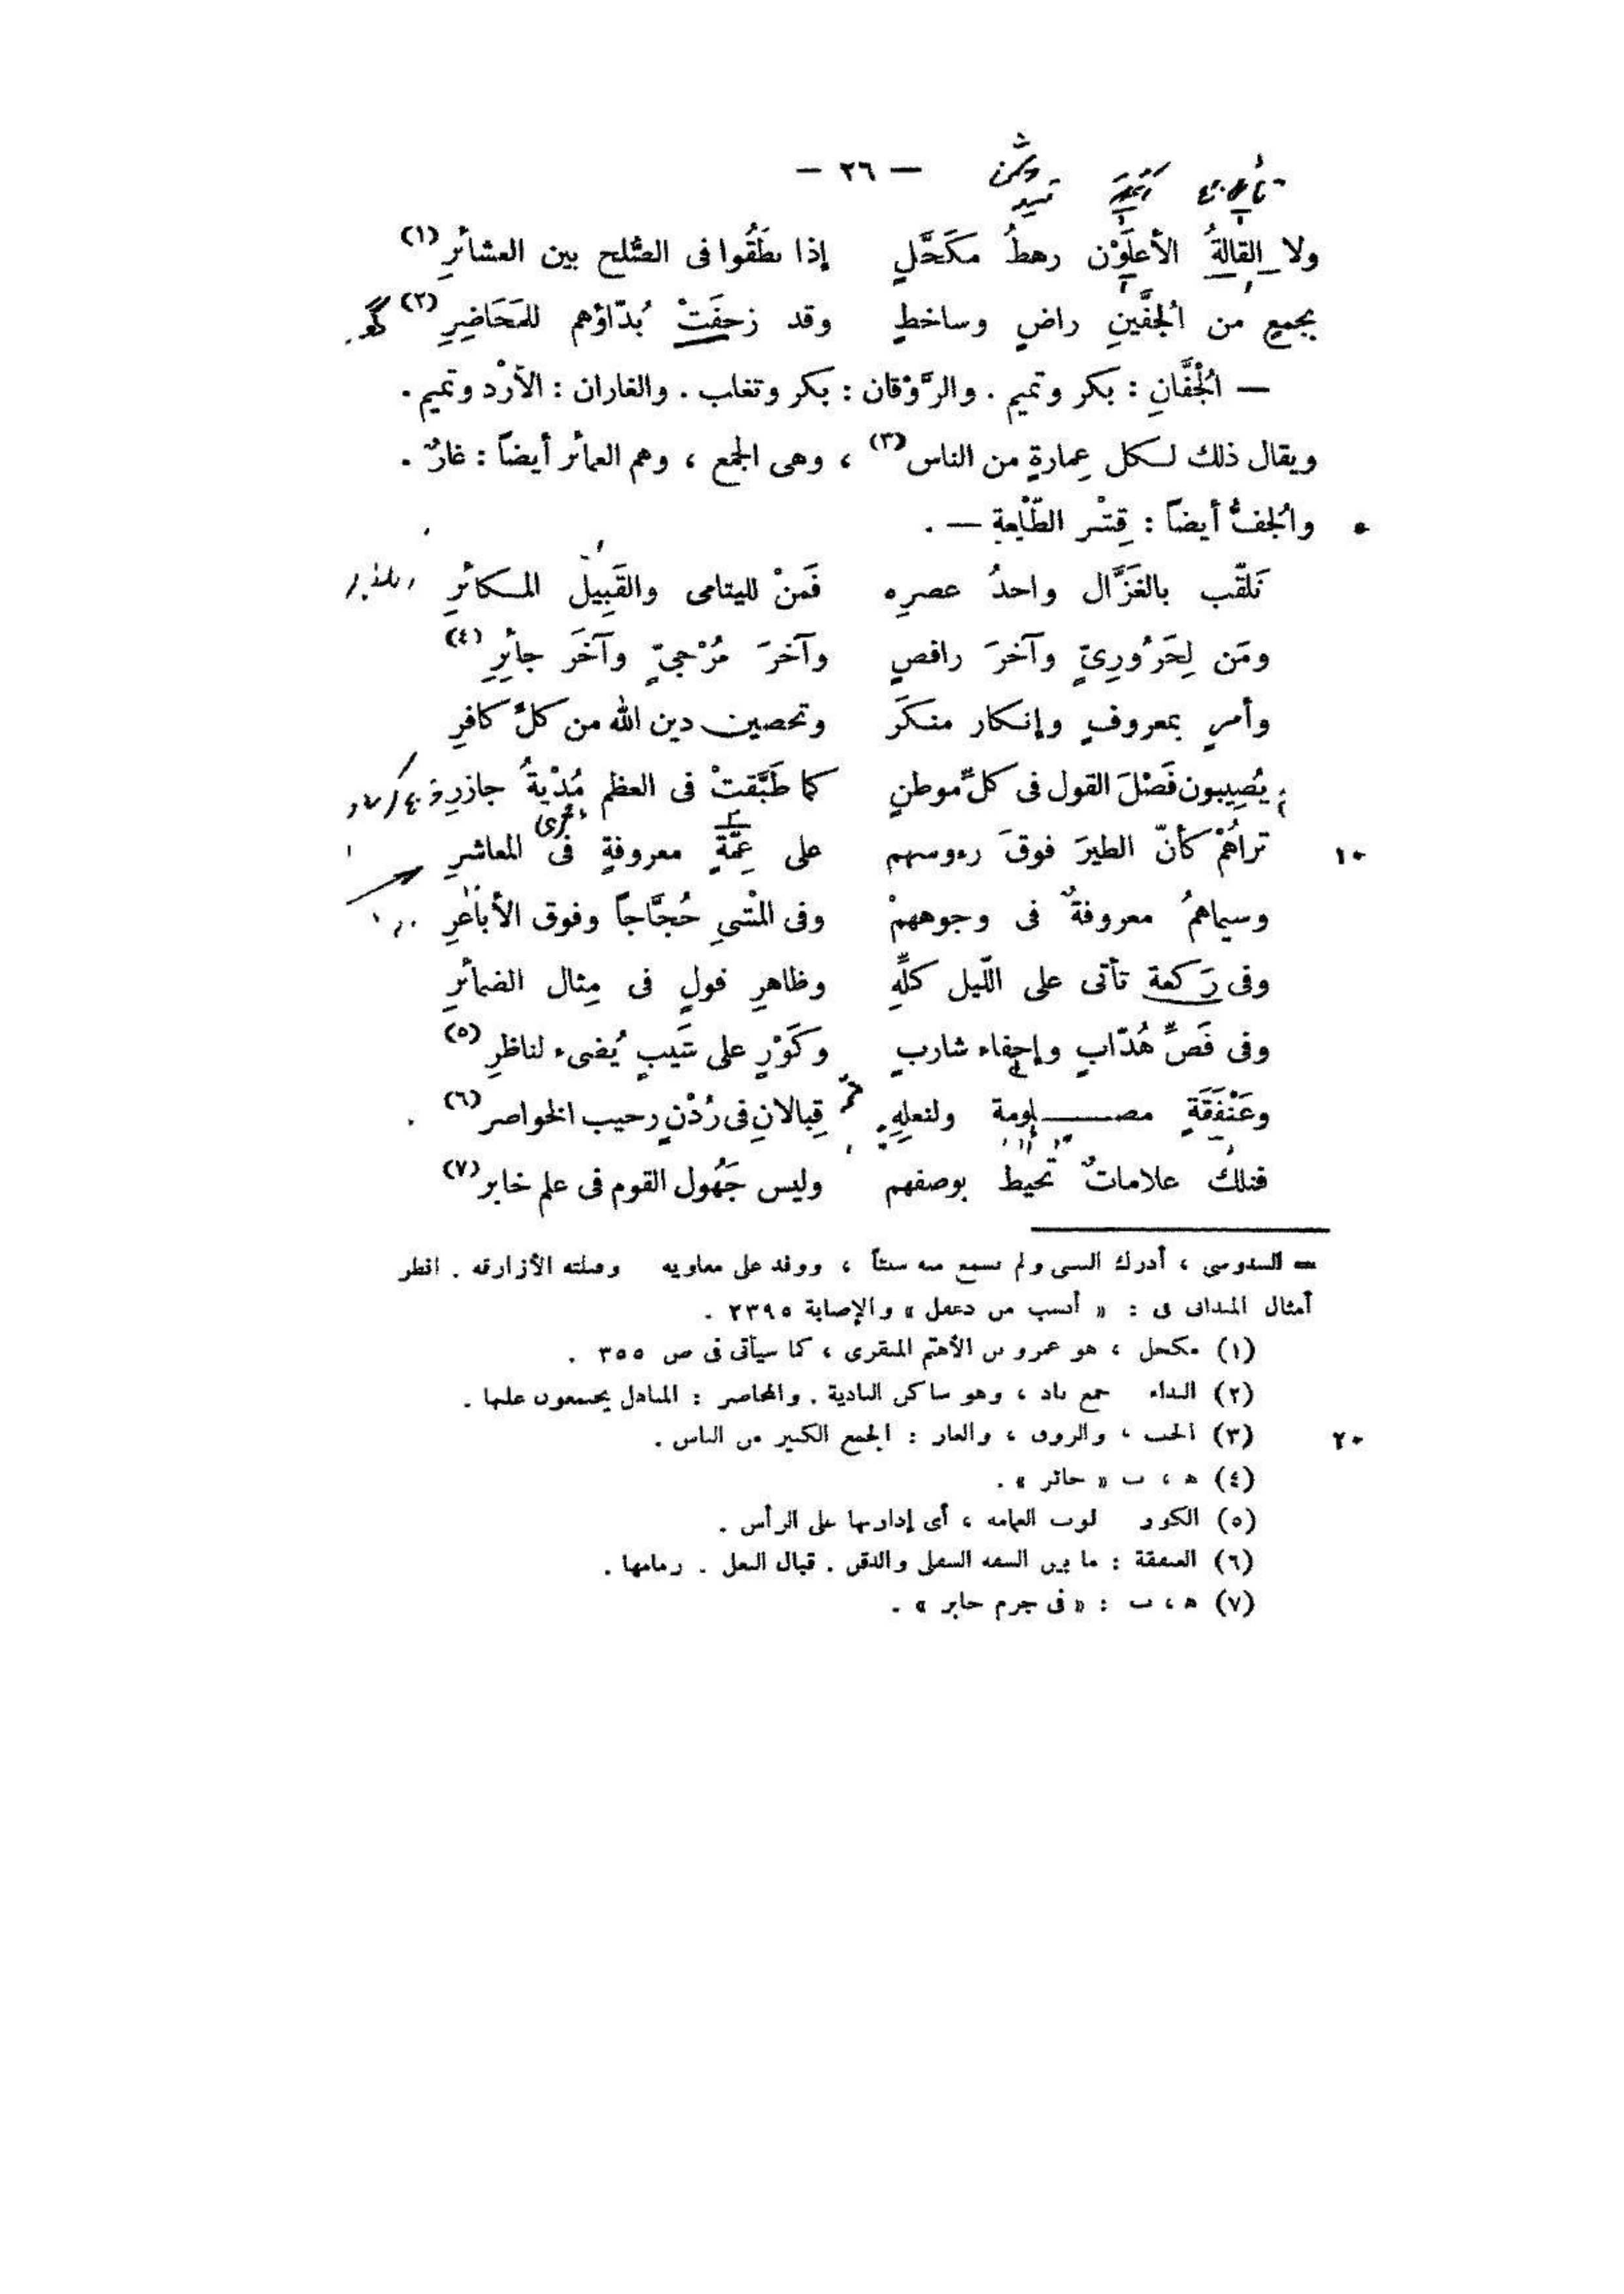 — ٢٦ —
ولا القالةُ الأعلَوْن رهطُ مكَحَّلٍ إذا نطَقُوا فى الصُّلح بين العشائرِ (١)
بجمعٍ من الجُفَّينِ راضٍ وساخطٍ وقد زحفَتْ بُدّاؤهم للمَحَاضِرِ (٢)
— الجُفَّانِ : بكر وتميم . والرَّوْقان : بكر وتغلب . والغاران : الأزْد وتميم .
ويقال ذلك لكل عِمارةٍ من الناس (٣) ، وهى الجمع ، وهم العمائر أيضاً : غارٌ .
٥ والجُفُّ أيضاً : قِشْر الطَّلعة — .
تَلقّب بالغَزَّال واحدُ عصرِه فَمَنْ لليتامى والقَبِيل المكاثرِ
ومَن لِحَرُورِيّ وآخرَ رافضٍ وآخرَ مُرْجيّ وآخَر جائِرِ (٤)
وأمرٍ بمعروفٍ وإنكار منكَرَ وتحصين دين الله من كلِّ كافرِ
يُصِيبون فَصْلَ القول فى كلِّ موطنٍ كما طَبَّقتْ فى العظم مُدْيةُ جازرِ
١٠ تراهُمْ كأنّ الطيرَ فوقَ رءوسهم على عِمَّةٍ معروفةٍ فى المعاشرِ
وسيماهمُ معروفةٌ فى وجوههمْ وفى المشْىِ حُجَّاجاً وفوق الأباعرِ
وفى رَكعة تأتى على اللّيل كلِّهِ وظاهرِ قولٍ فى مِثال الضمائرِ
وفى قَصِّ هُدّابٍ وإحفاء شاربٍ وكَوْرٍ على شَيبٍ يُضىء لناظرِ (٥)
وعَنْفَقَةٍ مصلومة ولنعلِهِ قِبالانِ فى رُدْنٍ رحيب الخواصر (٦)
فتلك علاماتٌ تحيط بوصفهم وليس جَهُول القوم فى علم خابر (٧)
= السدوسى ، أدرك النبى ولم يسمع منه شيئاً ، ووفد على معاويه وقتلته الأزارقه . انظر
أمثال الميدانى فى : « أنسب من دغفل » والإصابة ٢٣٩٥ .
(١) مكحل ، هو عمرو بن الأهتم المنقرى ، كما سيأتى فى ص ٣٥٥ .
(٢) البداء جمع باد ، وهو ساكن البادية . والمحاضر : المناهل يجتمعون عليها .
٢٠ (٣) الجف ، والروق ، والغار : الجمع الكثير من الناس .
(٤) ه ، ب « حائر » .
(٥) الكور لوث العمامه ، أى إدارتها على الرأس .
(٦) العنفقة : ما بين الشفه السفلى والذقن . قبال النعل . زمامها .
(٧) ه ، ب : « فى جرم خابر » .